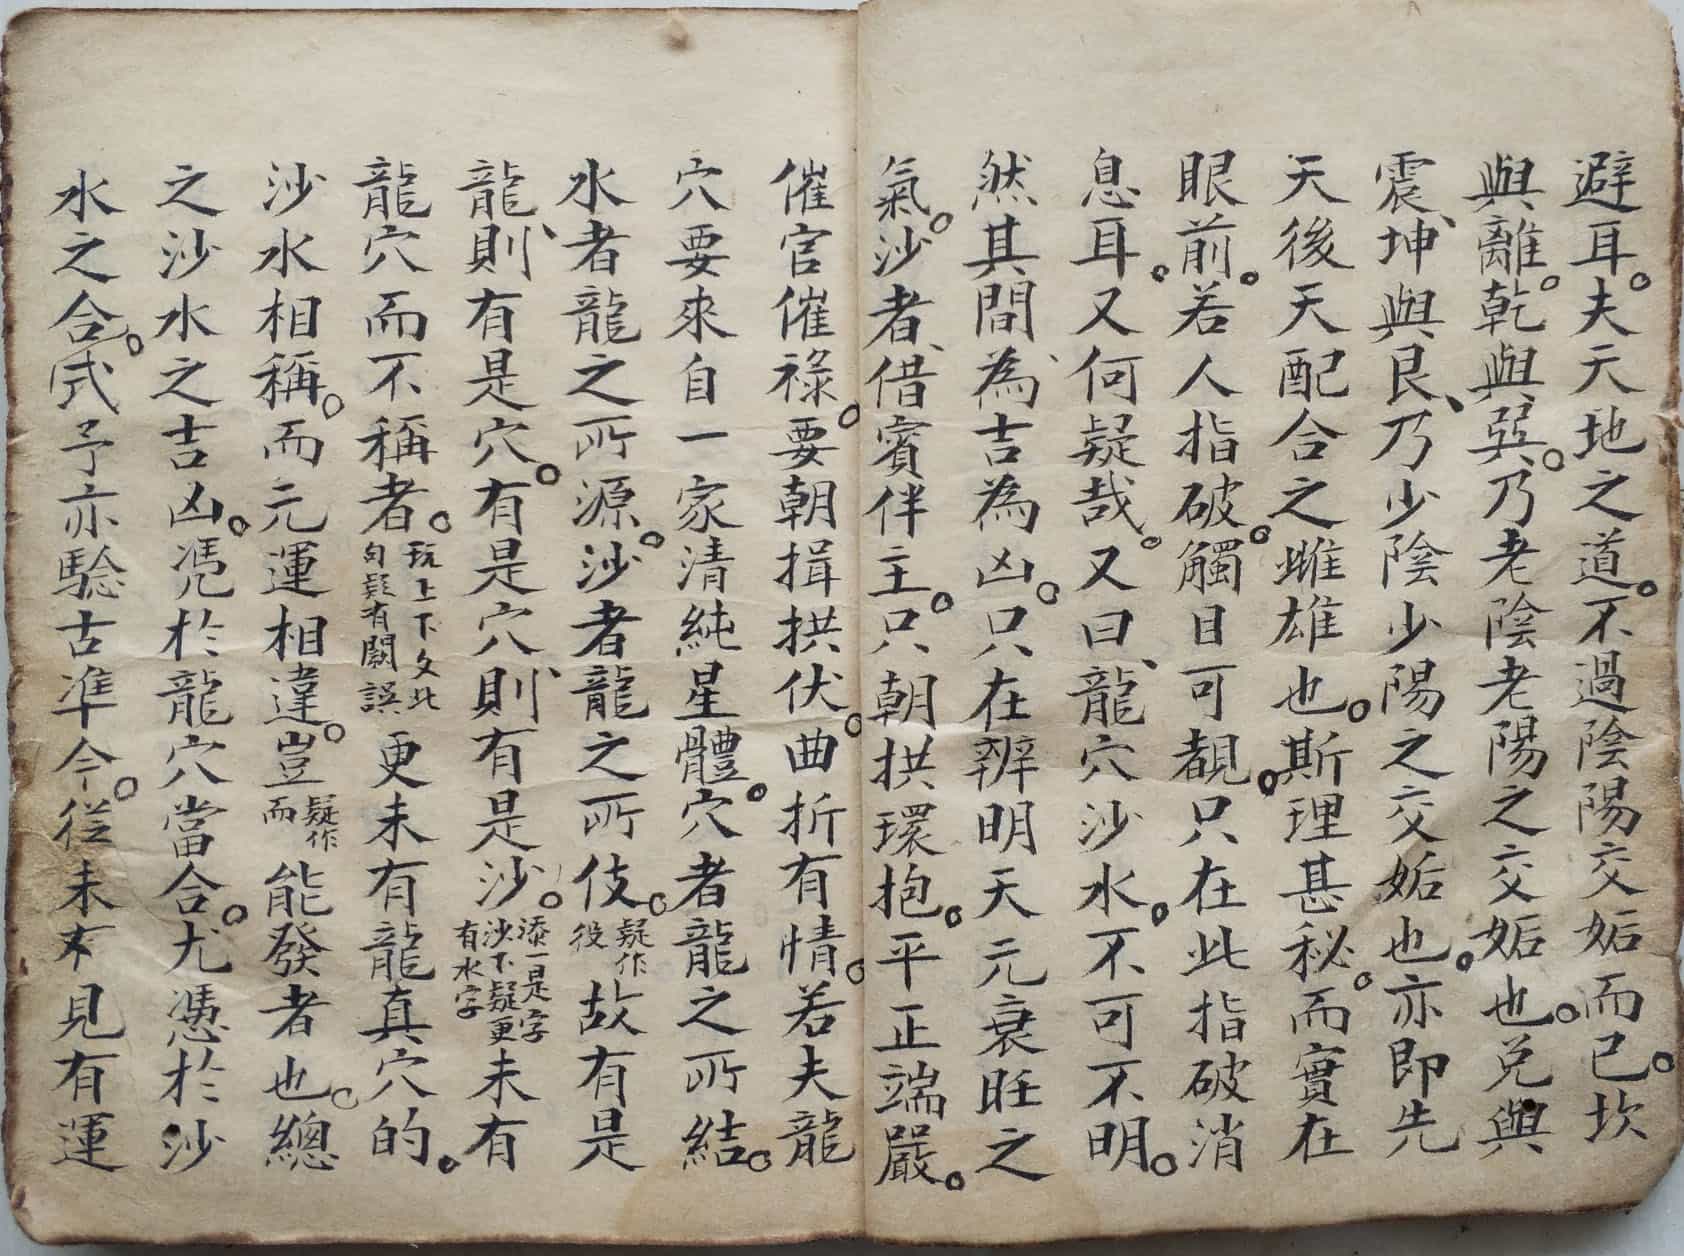 避耳。夫天地之道。不過陰陽交姤而已。坎
與離。乾與巽。乃老陰老陽之交姤也。兌與
震、坤與艮、乃少陰少陽之交姤也。亦即先
天後天配合之雌雄也。斯理甚秘。而實在
眼前。若人指破。觸目可覩。只在此指破消
息耳。又何疑哉。又曰、龍穴沙水。不可不明。
然其間、為吉為凶。只在辨明天元衰旺之
氣。沙者、借賓伴主。只朝拱環抱。平正端嚴。
催官催祿。要朝揖拱伏。曲折有情。若夫龍
穴要來自一家清純星體。穴者龍之所結。
水者龍之所源。沙者龍之所伎。疑作役故有是
龍、則有是穴。有是穴、則有是沙。添一是字沙下疑更有水字未有
龍穴而不稱者。玩上下文此句疑有闕誤更未有龍真穴的。
沙水相稱。而元運相違。豈疑作而能發者也。總
之沙水之吉凶。憑於龍穴當合。尤憑於沙
水之合。式予亦驗古準今。從未有見有運